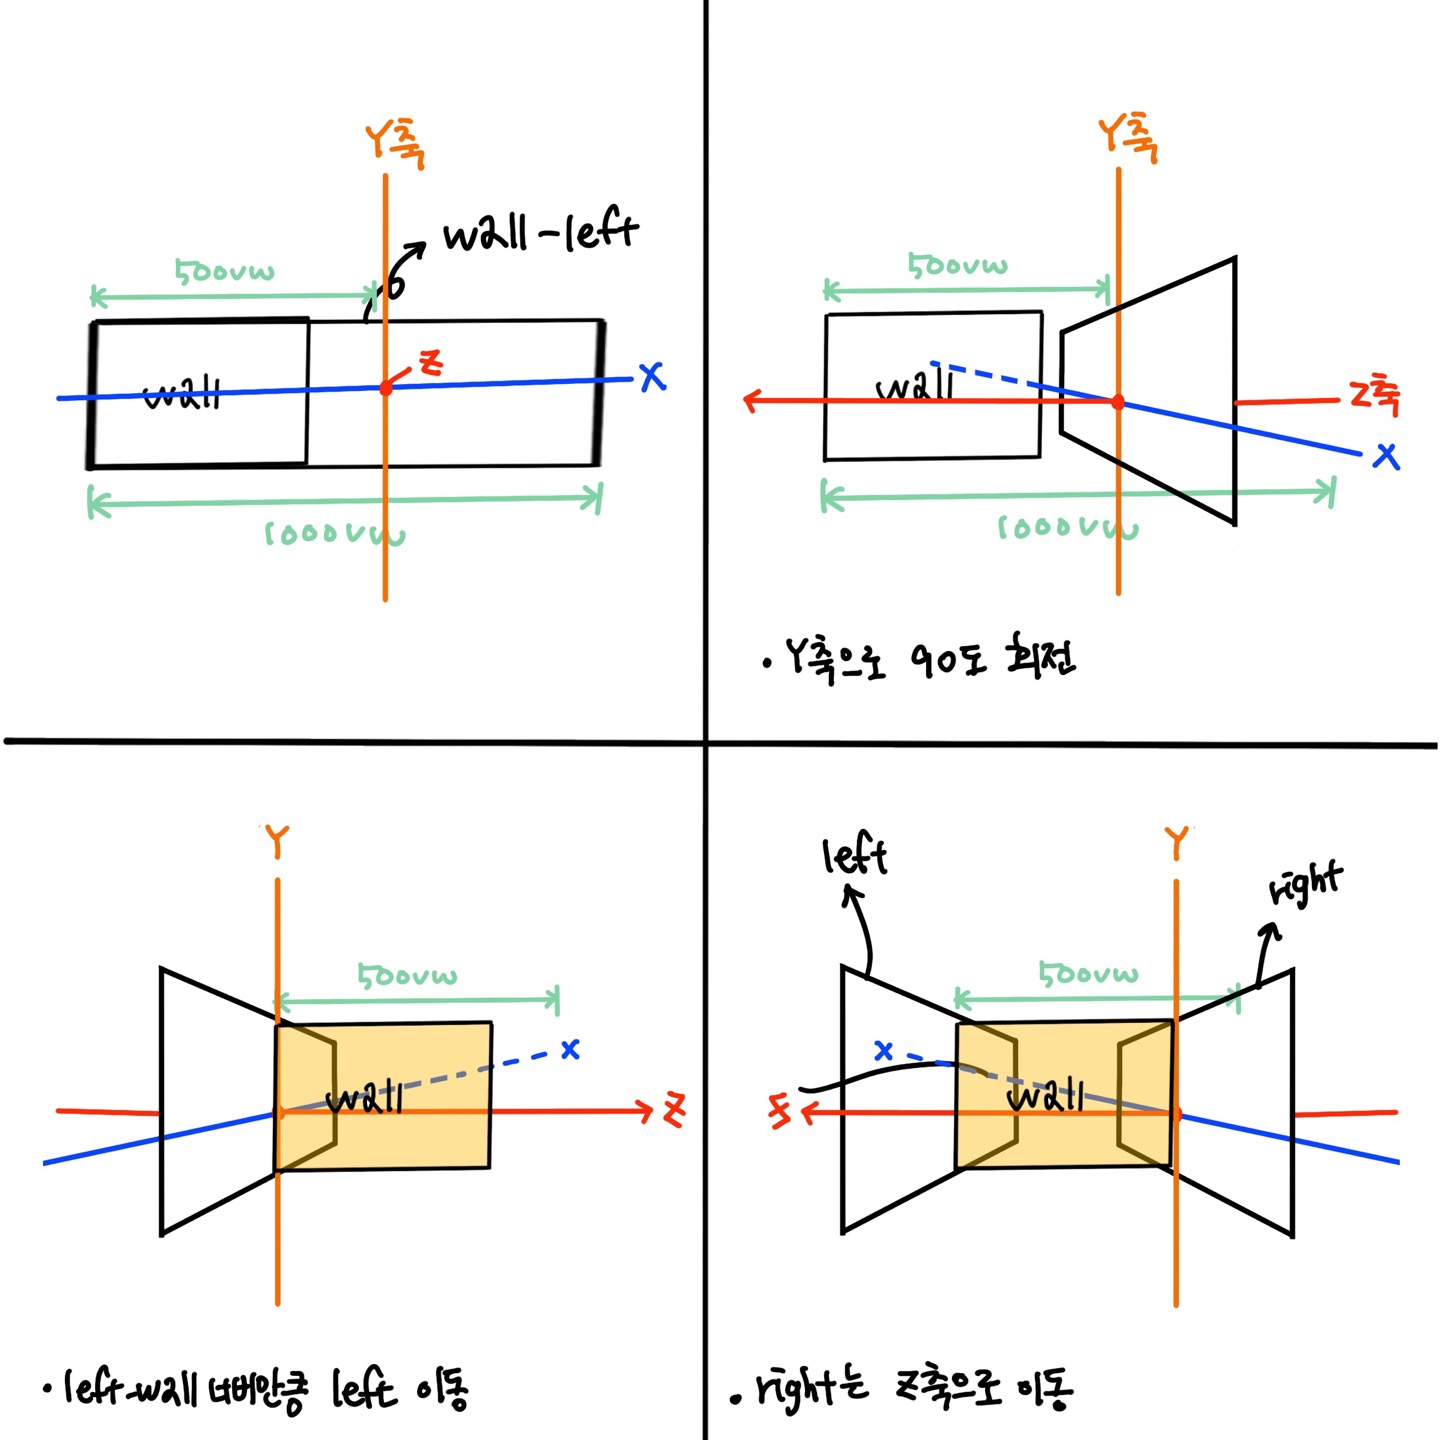 Y축
wall-left
500vw
Z
X
wall
1000vw
Y축
500vw
wall
Z축
X
1000vw
• Y축으로 90도 회전
Y
500vw
X
wall
Z
• left-wall 너비만큼 left 이동
left
Y
right
500vw
X
wall
• right는 Z축으로 이동